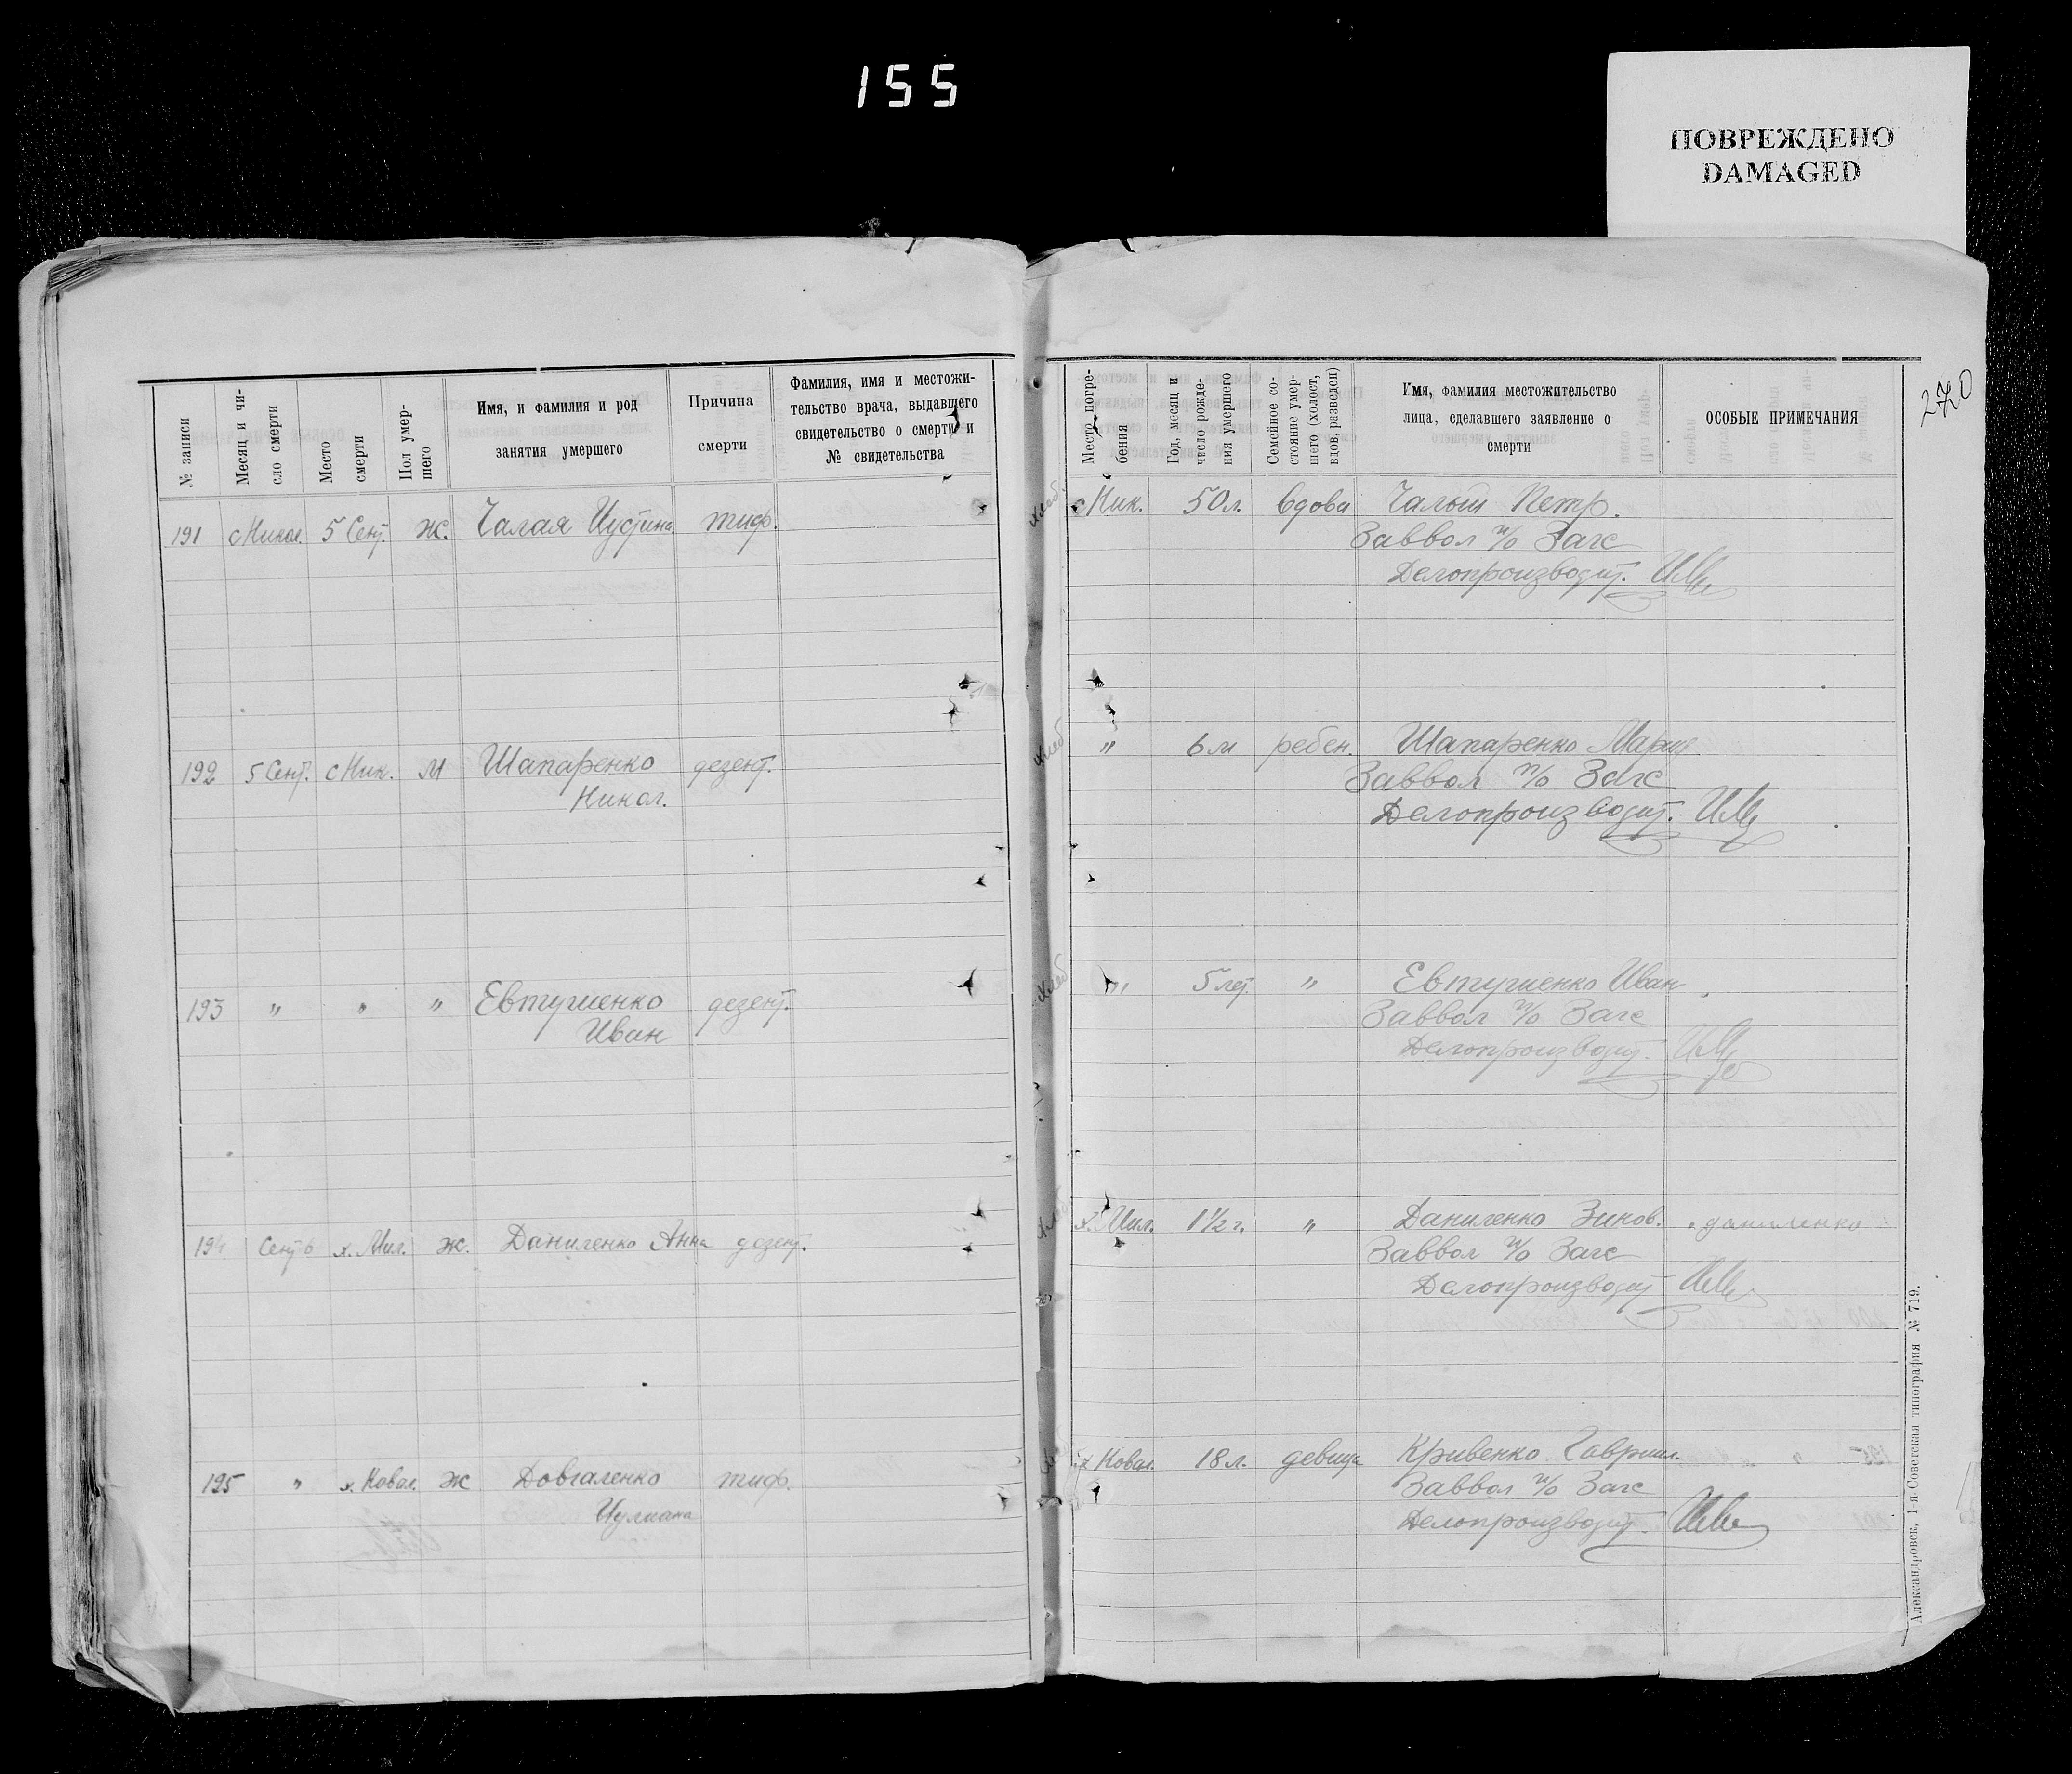 155
ПОВРЕЖДЕНО
DAMAGED
270
№ записи
Месяц и чи-
сло смерти
Место
смерти
Пол умер-
шего
Имя, и фамилия и род
занятия умершего
Причина
смерти
Фамилия, имя и местожи-
тельство врача, выдавшего
свидетельство о смерти и
№ свидетельства
Место погре-
бения
Год, месяц и
число рожде-
ния умершего
Семейное со-
стояние умер-
шего (холост,
вдов, разведен)
Имя, фамилия местожительство
лица, сделавшего заявление о
смерти
ОСОБЫЕ ПРИМЕЧАНИЯ
191 с Никол. 5 Сент. ж. Чалая Иустина тиф. с Ник. 50 л. вдова Чалый Петр.
Заввол п/о Загс
Делопроизводит.
192 5 Сент. с Ник. м Шапаренко дезент. " 6 м ребен. Шапаренко Мария
Никол. Заввол п/о Загс
Делопроизводит.
193 " " " Евтушенко дезент. " 5 лет. " Евтушенко Иван
Иван Заввол п/о Загс
Делопроизводит.
194 Сент 6 х. Мил. ж. Даниленко Анна дезент. х. Мил. 1 1/2 г. " Даниленко Зинов. даниленко
Заввол п/о Загс
Делопроизводит
195 " х. Ковал. ж Довгаленко тиф. х Ковал. 18 л. девица Кривенко Гавриил.
Иулиана Заввол п/о Загс
Делопроизводит.
Александровск, 1-я Советская типография № 719.